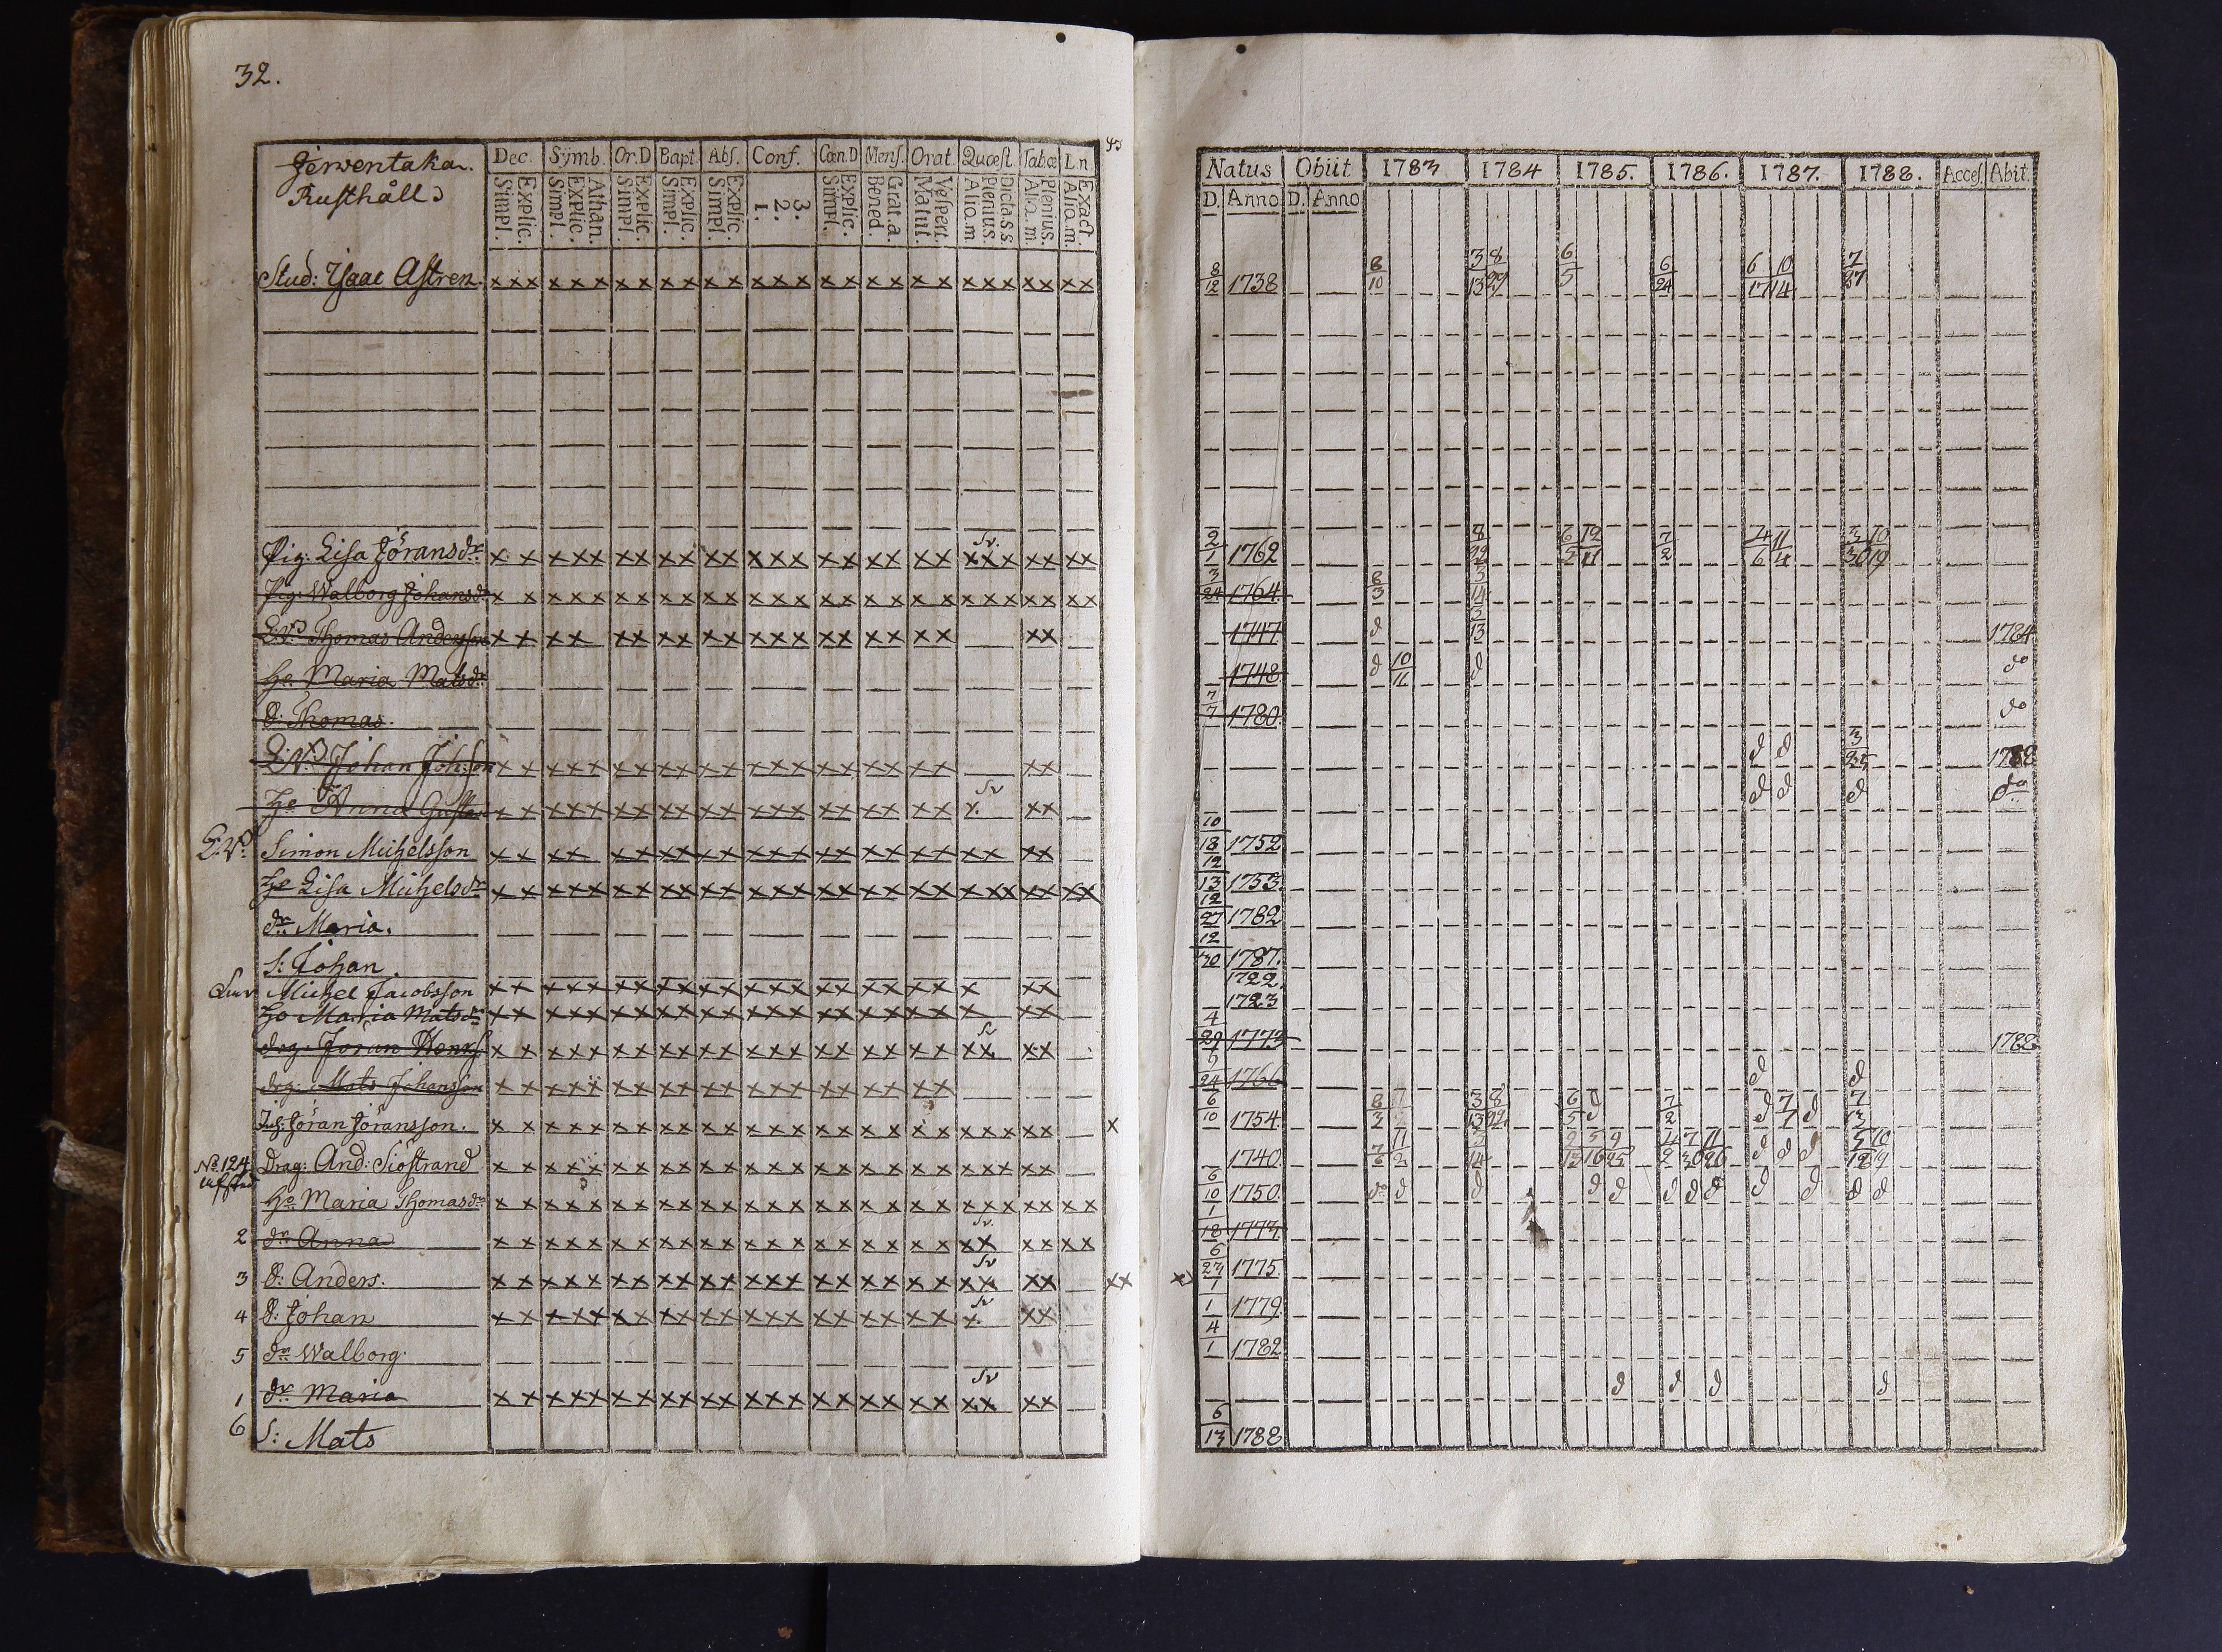 32.
45
Jerwentaka. Dec. Symb. Or.D Bapt. Abs. Conf. Cœn.D Mens. Orat. Quæst. Tabæ L.n
Rusthåll Simpl. Explic. Simpl. Explic. Athan. Simpl. Explic. Simpl. Explic. Simpl. Explic. 1. 2. 3. Simpl. Explic. Bened. Grat.a. Matut. Vespert. Alio.m. Plenius. Dicta s.s. Alio.m. Plenius. Alio.m. Exact.
Stud: Isaac Astren. x x x x x x x x x x x x x x x x x x x x x x x x x x x
Pig: Lisa Jöransdr
Sv.
Pig: Walborg Johansdr
Thomas Andersson
Ho Maria Matsdr
S: Thomas.
Johan Johsson
Ho Anna
Sv
Simon Michelsson
Ho Lisa Michelsdr
dr Maria.
S: Johan.
Michel Jacobsson
Ho Maria Matsdr
drg: Jöran
drg: Mats Johansson
Jöran Jöransson. x
No 124 Drag: And: Siöstrand
Ho Maria Thomasdr
2 dr Anna
Sv.
3 S: Anders. xx
Sv
4 S: Johan
Sv
5 dr Walborg.
1 dr Maria
Sv
6 S: Mats
Natus Obiit 1783 1784 1785. 1786. 1787. 1788. Acces. Abit.
D. Anno D. Anno
8/12 1738 8/10 3/13 8/29 6/5 6/24 6/17 10/14 7/27
2/1 1762 8/22 6/5 12/11 7/2 4/6 11/4 3/30 10/19
3/24 1764 8/3 3/14
1747 d 3/13 1784
1748 d 10/11 d do
7/7 1780. do
d d 3/25 1788
d d d do
10/18 1752
12/13 1753
12/27 1782
12/30 1787.
1722
1723
4/29 1773 1788
9/24 1766 d d
6/10 1754. 8/3 3/13 8/22 6/5 d 7/2 d 7/7 d 7/13
1740. 7/6 11/2 3/14 2/13 3/16 9/25 4/2 7/30 11/26 d d d 5/18 10/19
6/10 1750. do d d d d d d d d d d d
1/18 1773.
6/23 1775.
1/1 1779.
4/1 1782
d d d d
6/13 1788